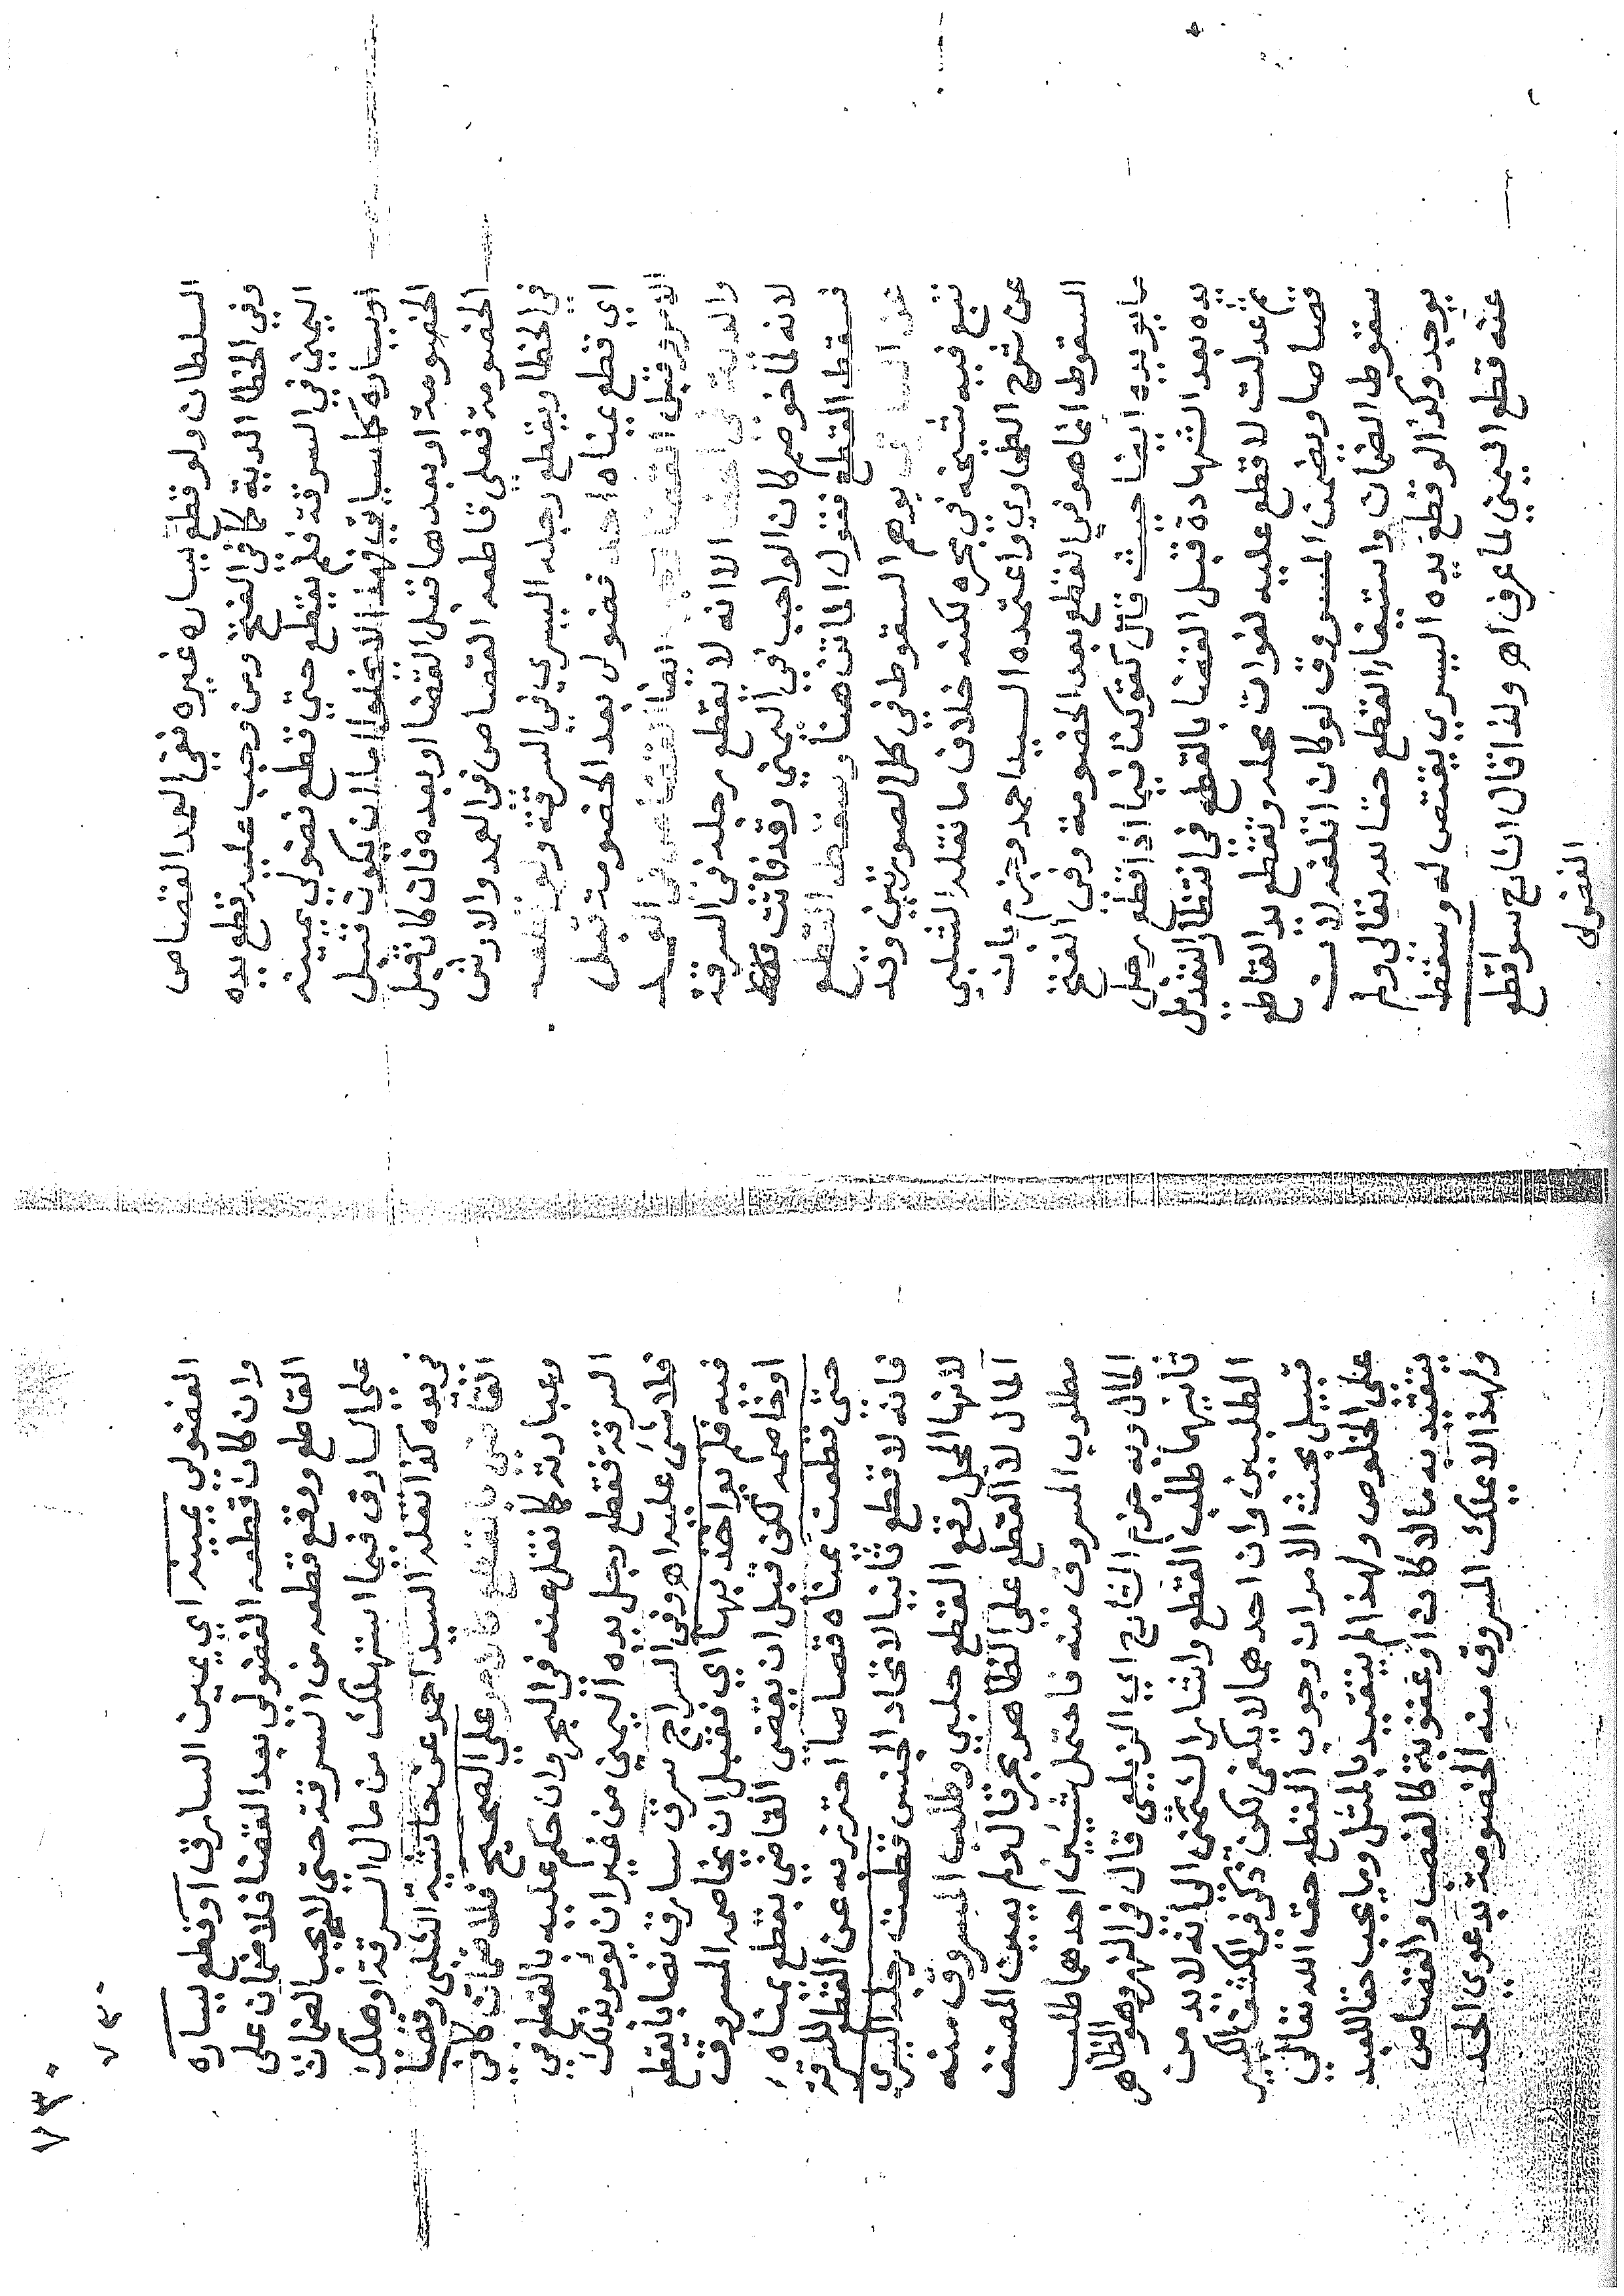 السلطان ولو قطع يساره غيره ففي العمد القصاص
وفي الخطا الدية كما في الفتح ومن وجب عليه قطع يده
اليمني في السرقة فلم يقطع حتى قطع فضولي يمينه
او يساره كما سياتي فهذا لا يخلوا اما ان يكون قبل
الخصومة او بعدها قبل القضا او بعده فان كان قبل
الخصومة فعلى قاطعه القصاص في العمد والارش
في الخطا ويقطع رجله اليسري في السرقة
اي قطع يمناه احد فضولي بعد الخصومة قبل
الامر وقبل القضا ايضا القصاص في العمد
والدية في الخطا الا انه لا يقطع رجله في السرقة
لانه لما خوصم كان الواجب في اليمني وقد فاتت
فسقط القطع فقول الماتن هنا وسقط القطع
عن السارق يوهم السقوط في كل الصورتين وقد
تبع فيه شيخه في بحره لكنه خلاف ما نقله الشلبي
عن شرح الطحاوي واعتمده السيد احمد وجزم بان
السقوط انما هو في القطع بعد الخصومة وفي الفتح
ما يويده ايضا حيث قال كقولنا فيما اذا قطع رجل
يده بعد الشهادة قبل القضا بالقطع في انتظار التعديل
ثم عدلت لا قطع عليه لفوات محله وتقطع يد القاطع
قصاصا ويضمن المسروق لو كان اتلفه لان
سقوط الضمان باستيفاء القطع حقا لله تعالى ولم
يوجد وكذا لو قطع يده اليسري يقتص له وسقط
عنه قطع اليمني لما عرف اهـ ولذا قال الشارح سواقطع
الفضولى
٧٣٠
الفضولي يمينه اي يمين السارق او قطع يساره
وان كان قطعه الفضولي بعد القضا فلا ضمان على
القاطع ووقع قطعه من السرقة حتى لا يجب الضمان
على السارق فيما استهلك من مال السرقة او هلك
في يده كذا نقله السيد احمد عن حاشية الشلبي وقضا
القاضي بالقطع كالامر على الصحيح فلا ضمان كافي
وعبارته كما نقل عنه في البحر وان حكم عليه بالقطع في
السرقة فقطع رجل يده اليمني من غير ان يؤمر بذلك
فلا شئ عليه اهـ وفي السراج سرق سارق نصابا يقطع
فيه فلم يواخذ بها اي فقبل ان يخاصمه المسروق
او خاصمه لكن قبل ان يقضي القاضي بقطع يمناه
حتى قطعت يمناه قصاصا احترز به عن القطع للسرقة
فانه لا قطع ثانيا لاتحاد الجنس قطعت رجله اليسري
لانها المحل وقع القطع حلبي وطلب المسروق منه
المال لا القطع على الظاهر بحر قال ولم يبين المصنف
مطلوب المسروق منه فاحتمل شيئين احدهما طلب
المال وبه جزم الشارح اي الزيلعي قال في النهر وهو الظاهر
ثانيهما طلب القطع واشار الشمني الى انه لا بد من
الطلبين وان احدهما لا يكفي لكن ذكر في الكشف الكبير
قبيل بحث الامر ان وجوب القطع حق الله تعالى
على الخلوص ولهذا لم يتقيد بالمثل وما يجب حقا للعبد
يتقيد به مالا كان او عقوبة كالغصب والقصاص
ولهذا لا يملك المسروق منه الخصومة بدعوى الحد